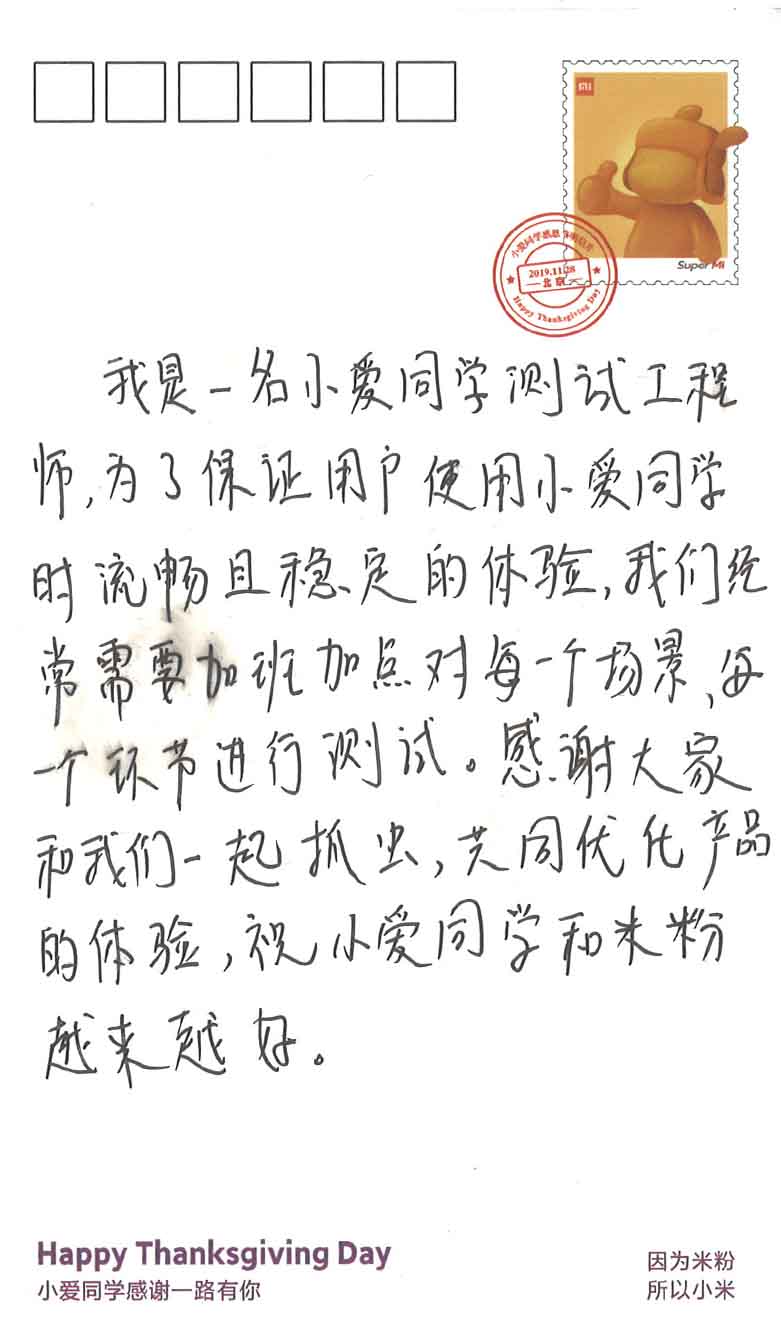 MI
Super Mi
小爱同学感恩节明信片
2019.11.28
北京
Happy Thanksgiving Day
我是一名小爱同学测试工程
师,为了保证用户使用小爱同学
时流畅且稳定的体验,我们经
常需要加班加点对每一个场景、每
一个环节进行测试。感谢大家
和我们一起抓虫,共同优化产品
的体验,祝小爱同学和米粉
越来越好。
Happy Thanksgiving Day
小爱同学感谢一路有你
因为米粉
所以小米